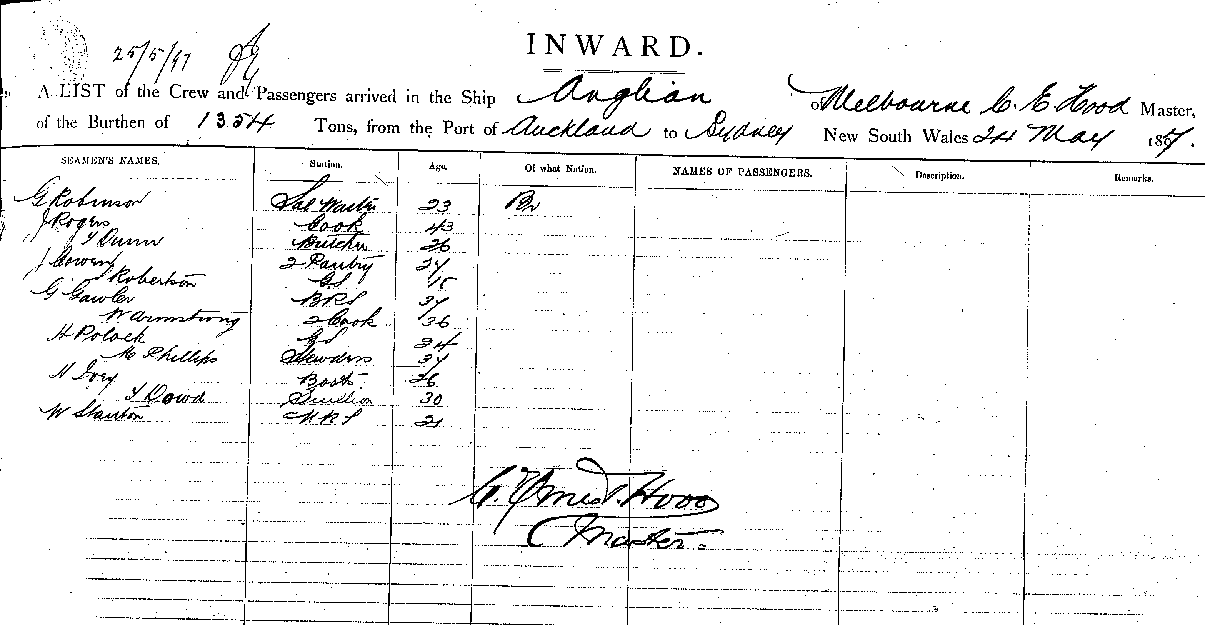 INWARD.
25/5/97
A LIST of the Crew and Passengers arrived in the Ship Anglian of Melbourne C. E. Hood Master,
of the Burthen of 1354 Tons, from the Port of Auckland to Sydney New South Wales 24 May 1897.
SEAMEN'S NAMES. Station. Age. Of what Nation. NAMES OF PASSENGERS. Description. Remarks.
G Robinson Sal Waiter 23 Br
J Rogers Cook 43
T Dunn Butcher 26
J Cowen 2 Pantry 24
Robertson GS 15
G Gawler BRS 34
W Armstrong 2 Cook 36
H Polack GS 34
Mc Phillips Stewdess 34
H Ivey 26
T Dowd Scullion 30
W Stanton MRS 21
C. Ernest. Hood
Master.